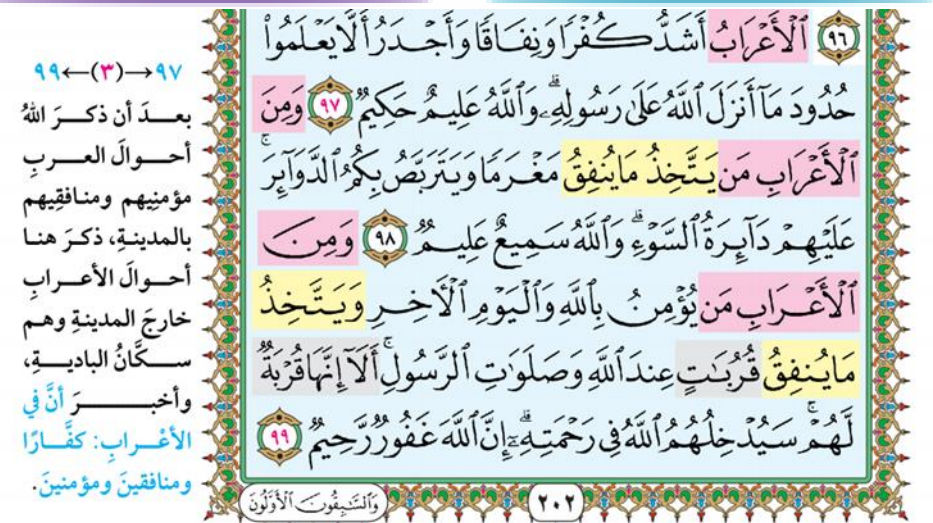 ٩٦ ٱلْأَعْرَابُ أَشَدُّ كُفْرًا وَنِفَاقًا وَأَجْدَرُ أَلَّا يَعْلَمُوا۟
حُدُودَ مَآ أَنزَلَ ٱللَّهُ عَلَىٰ رَسُولِهِۦ ۗ وَٱللَّهُ عَلِيمٌ حَكِيمٌ ٩٧ وَمِنَ
ٱلْأَعْرَابِ مَن يَتَّخِذُ مَا يُنفِقُ مَغْرَمًا وَيَتَرَبَّصُ بِكُمُ ٱلدَّوَآئِرَ ۚ
عَلَيْهِمْ دَآئِرَةُ ٱلسَّوْءِ ۗ وَٱللَّهُ سَمِيعٌ عَلِيمٌ ٩٨ وَمِنَ
ٱلْأَعْرَابِ مَن يُؤْمِنُ بِٱللَّهِ وَٱلْيَوْمِ ٱلْءَاخِرِ وَيَتَّخِذُ
مَا يُنفِقُ قُرُبَـٰتٍ عِندَ ٱللَّهِ وَصَلَوَٰتِ ٱلرَّسُولِ ۚ أَلَآ إِنَّهَا قُرْبَةٌ
لَّهُمْ ۚ سَيُدْخِلُهُمُ ٱللَّهُ فِى رَحْمَتِهِۦٓ ۗ إِنَّ ٱللَّهَ غَفُورٌ رَّحِيمٌ ٩٩
٢٠٢
وَٱلسَّـٰبِقُونَ ٱلْأَوَّلُونَ
٩٧→(٣)←٩٩
بعدَ أن ذكرَ اللهُ
أحوالَ العربِ
مؤمنِيهم ومنافقِيهم
بالمدينةِ، ذكرَ هنا
أحوالَ الأعرابِ
خارجَ المدينةِ وهم
سكَّانُ الباديةِ،
وأخبرَ أنَّ في
الأعْرابِ: كفَّارًا
ومنافقينَ ومؤمنينَ.